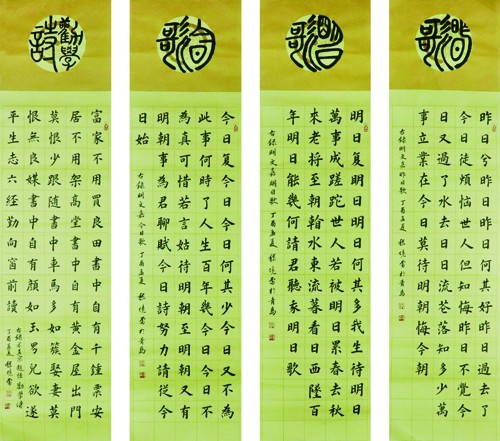 昨日歌
昨日兮昨日昨日何其好昨日過去了
今日徒煩惱世人但知悔昨日不覺今
日又過了水去日日流花落知多少萬
事立業在今日莫待明朝悔今朝
右錄明文嘉昨日歌 丁酉孟夏 書於青島
明日歌
明日复明日明日何其多我生待明日
萬事成蹉跎世人若被明日累春去秋
來老將至朝看水東流暮看日西墜百
年明日能幾何請君聽我明日歌
右錄明文嘉明日歌 丁酉孟夏 書於青島
今日歌
今日复今日今日何其少今日又不為
此事何時了人生百年幾今日今日不
為真可惜若言姑待明朝至明朝又有
明朝事為君聊賦今日詩努力請從今
日始
右錄明文嘉今日歌 丁酉孟夏 書於青島
勸學詩
富家不用買良田書中自有千鍾粟安
居不用架高堂書中自有黃金屋出門
莫恨少跟隨書中車馬多如簇娶妻莫
恨無良媒書中自有顏如玉男兒欲遂
平生志六經勤向窗前讀
右錄宋真宗趙恒勸學詩
丁酉孟夏